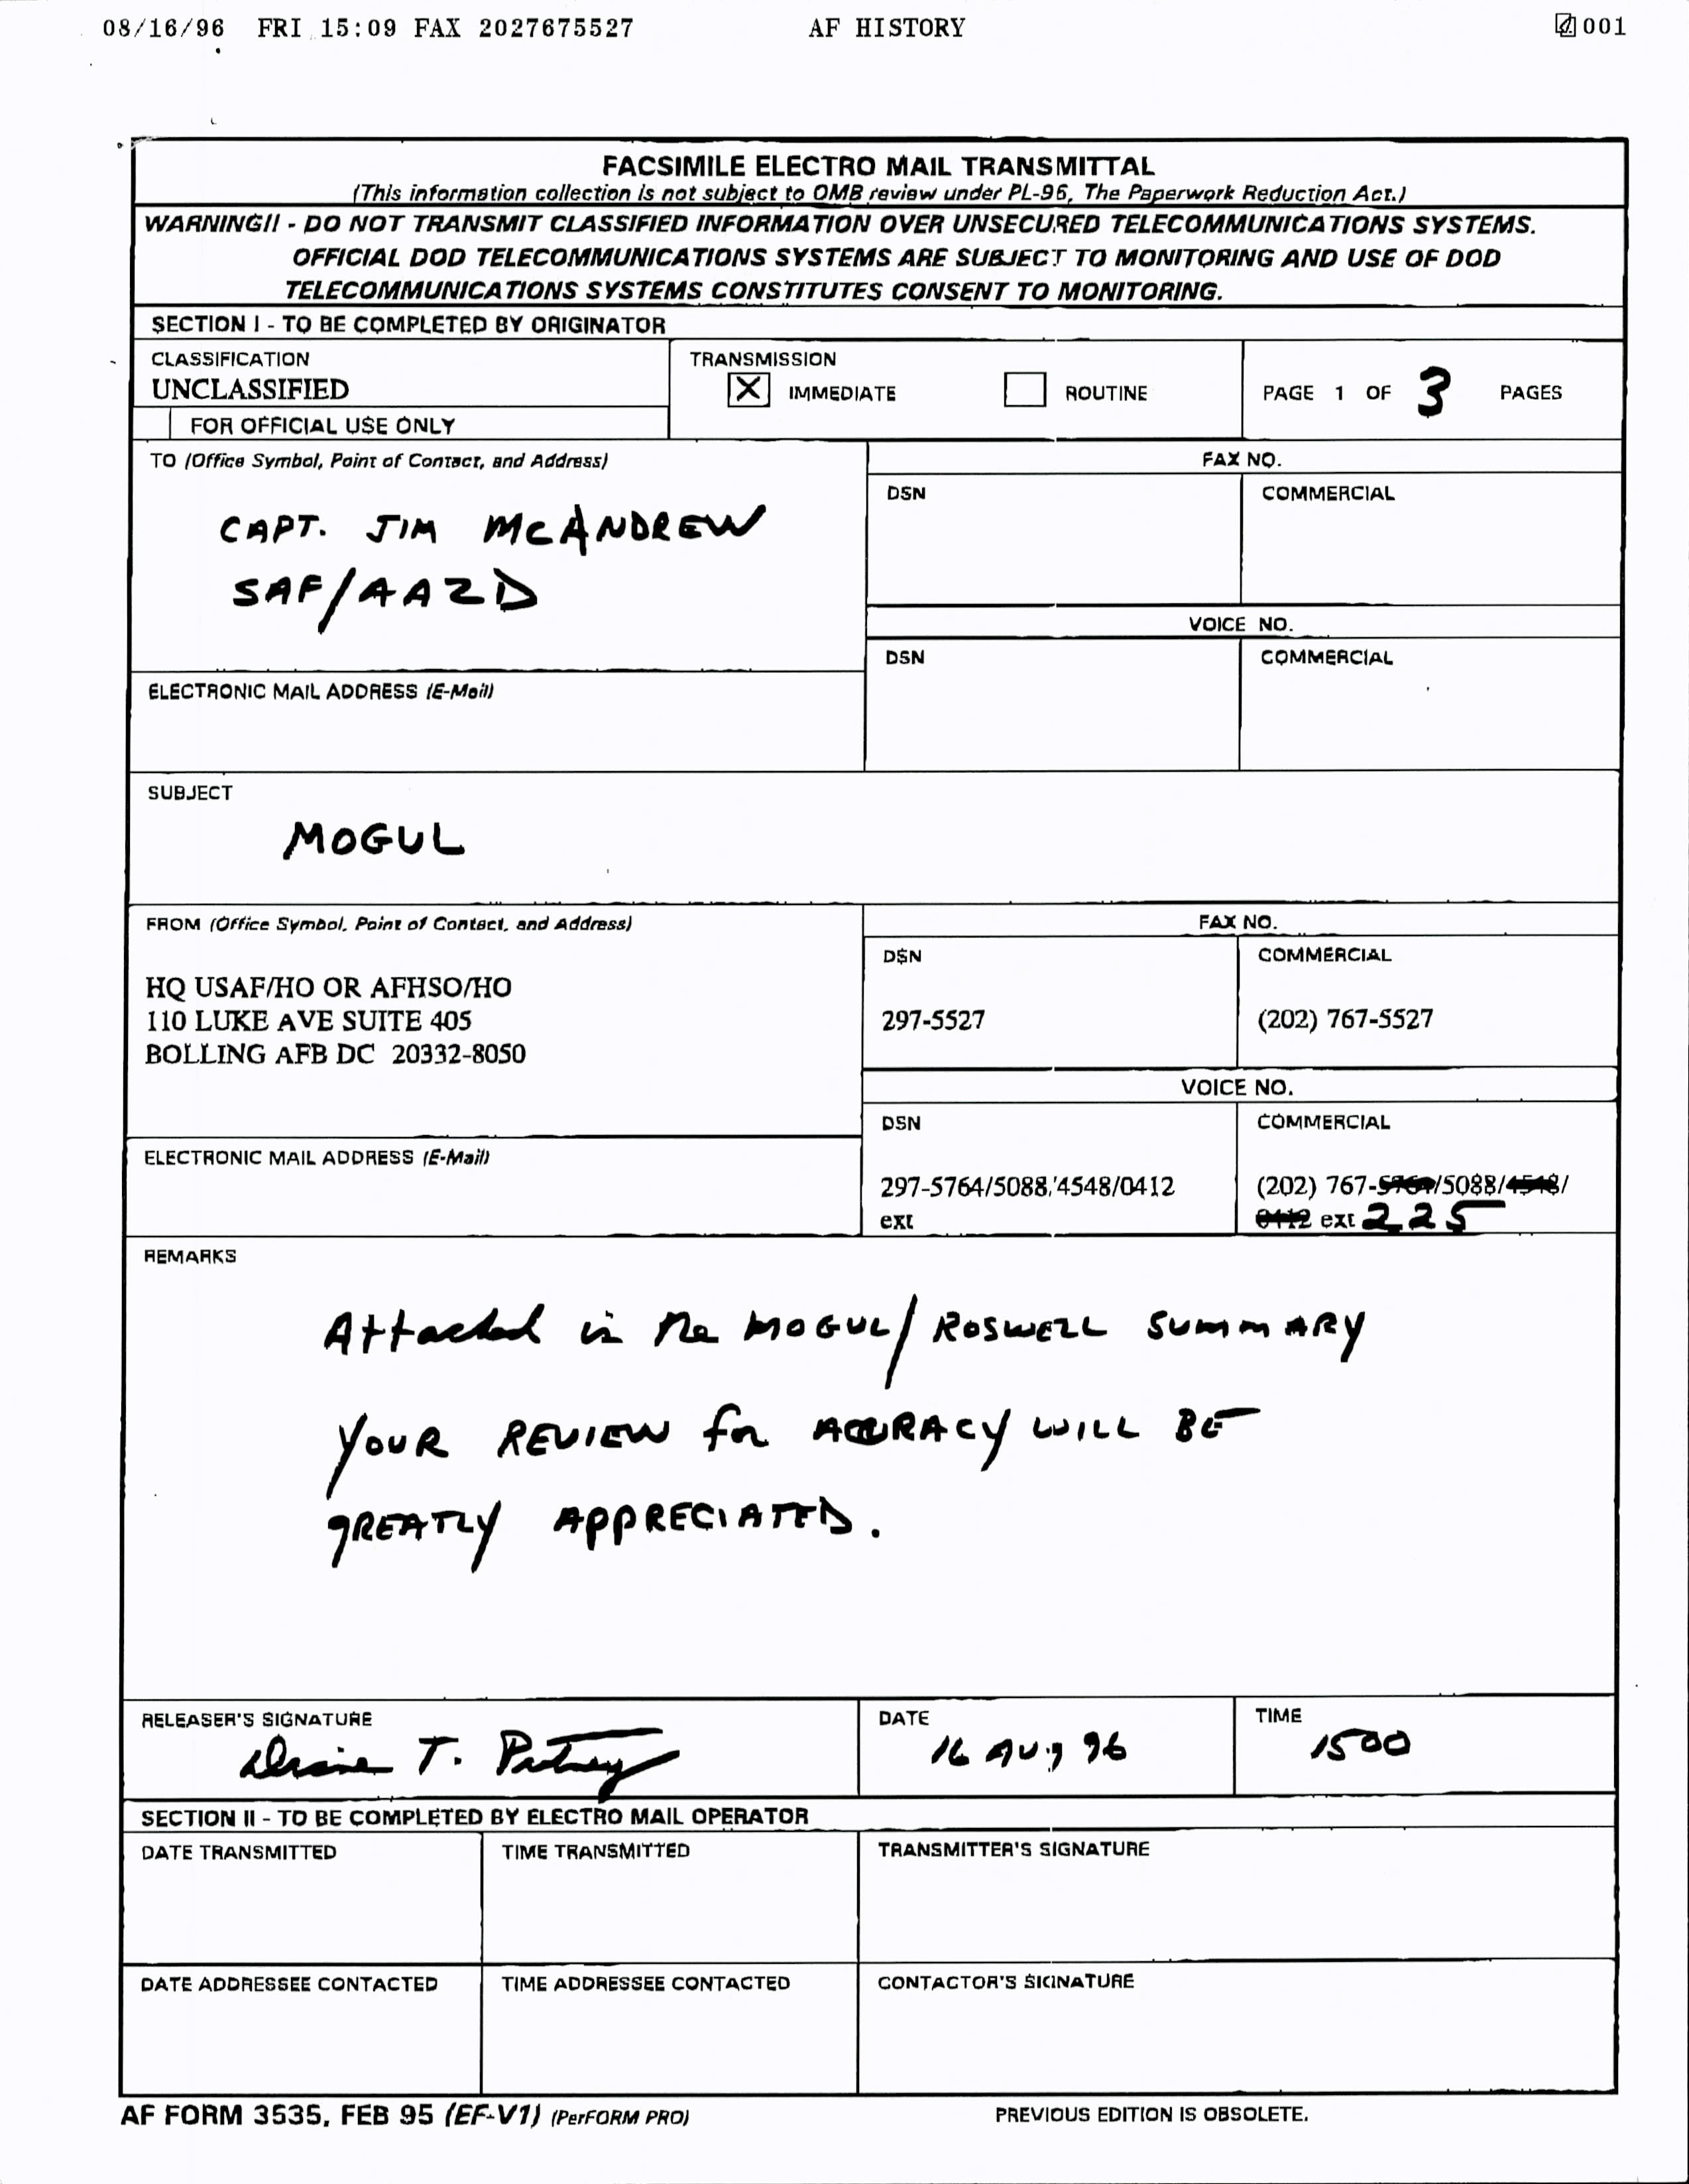 08/16/96 FRI 15:09 FAX 2027675527 AF HISTORY 001
FACSIMILE ELECTRO MAIL TRANSMITTAL
(This information collection is not subject to OMB review under PL-96, The Paperwork Reduction Act.)
WARNING!! - DO NOT TRANSMIT CLASSIFIED INFORMATION OVER UNSECURED TELECOMMUNICATIONS SYSTEMS.
OFFICIAL DOD TELECOMMUNICATIONS SYSTEMS ARE SUBJECT TO MONITORING AND USE OF DOD
TELECOMMUNICATIONS SYSTEMS CONSTITUTES CONSENT TO MONITORING.
SECTION I - TO BE COMPLETED BY ORIGINATOR
CLASSIFICATION
UNCLASSIFIED
FOR OFFICIAL USE ONLY
TRANSMISSION
X IMMEDIATE ROUTINE
PAGE 1 OF 3 PAGES
TO (Office Symbol, Point of Contact, and Address)
CAPT. JIM MCANDREW
SAF/AAZD
FAX NO.
DSN COMMERCIAL
VOICE NO.
DSN COMMERCIAL
ELECTRONIC MAIL ADDRESS (E-Mail)
SUBJECT
MOGUL
FROM (Office Symbol, Point of Contact, and Address)
HQ USAF/HO OR AFHSO/HO
110 LUKE AVE SUITE 405
BOLLING AFB DC 20332-8050
FAX NO.
DSN COMMERCIAL
297-5527 (202) 767-5527
VOICE NO.
DSN COMMERCIAL
297-5764/5088/4548/0412 (202) 767-5764/5088/4548/
ext 0412 ext 225
ELECTRONIC MAIL ADDRESS (E-Mail)
REMARKS
Attached is the MOGUL/ROSWELL SUMMARY
YOUR REVIEW for ACCURACY WILL BE
GREATLY APPRECIATED.
RELEASER'S SIGNATURE
T.
DATE
16 Aug 96
TIME
1500
SECTION II - TO BE COMPLETED BY ELECTRO MAIL OPERATOR
DATE TRANSMITTED TIME TRANSMITTED TRANSMITTER'S SIGNATURE
DATE ADDRESSEE CONTACTED TIME ADDRESSEE CONTACTED CONTACTOR'S SIGNATURE
AF FORM 3535, FEB 95 (EF-V1) (PerFORM PRO) PREVIOUS EDITION IS OBSOLETE.